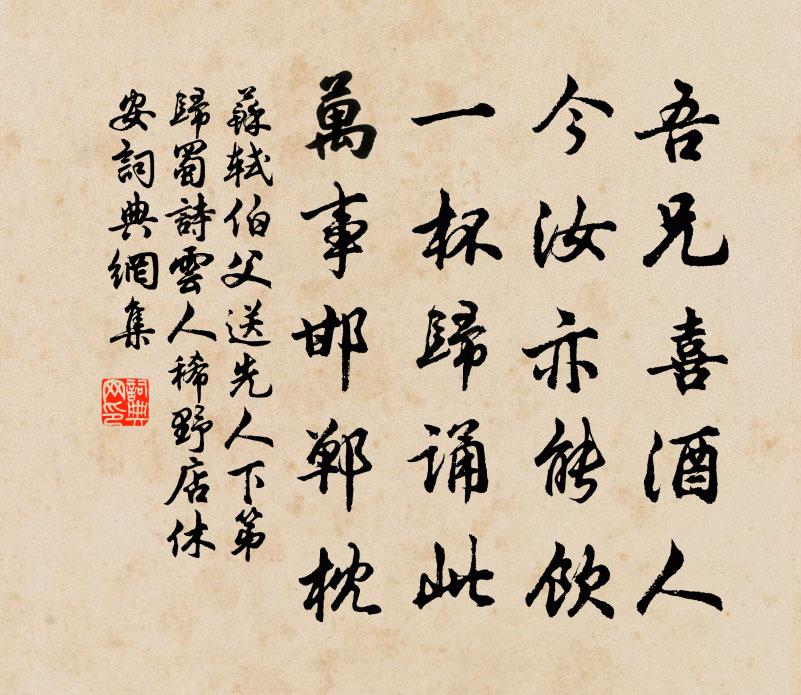 吾兄喜酒人
今汝亦能飲
一杯歸誦此
萬事邯鄲枕
蘇軾伯父送先人下第
歸蜀詩雲人稀野店休
安詞典網集
詞典
网印